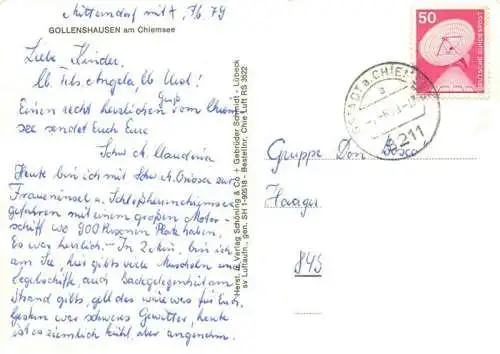 Mitterndorf mitt, 7/6. 79
GOLLENSHAUSEN am Chiemsee
Liebe Kinder,
lb. Frls. Angela, lb Ued!
Einen recht herzlichen Gruß vom Chiem
see sendet Euch Eure
Schw. M. Claudina
Heute bin ich mit Schw. M. zur
Fraueninsel u. Schloßherrenchiemsee
gefahren mit einem großen Motor-
schiff wo 900 Personen Platz haben.
Es war herrlich – In 2 Min. bin ich
am See, hier gibts viele Muscheln und
Segelschiffe, auch Badegelegenheit am
Strand gibts, gell das wäre was für Euch.
Gestern war schweres Gewitter, heute
ist es ziemlich kühl, aber angenehm.
Herst. u. Verlag Schöning & Co + Gebrüder Schmidt - Lübeck
sv Luftaufn., gen. SH 1-90618 - Bestellnr. Chie Luft RS 3522
50
DEUTSCHE BUNDESPOST
STADT a. CHIEM
a
8211
Gruppe Don Bosco
Haag
845